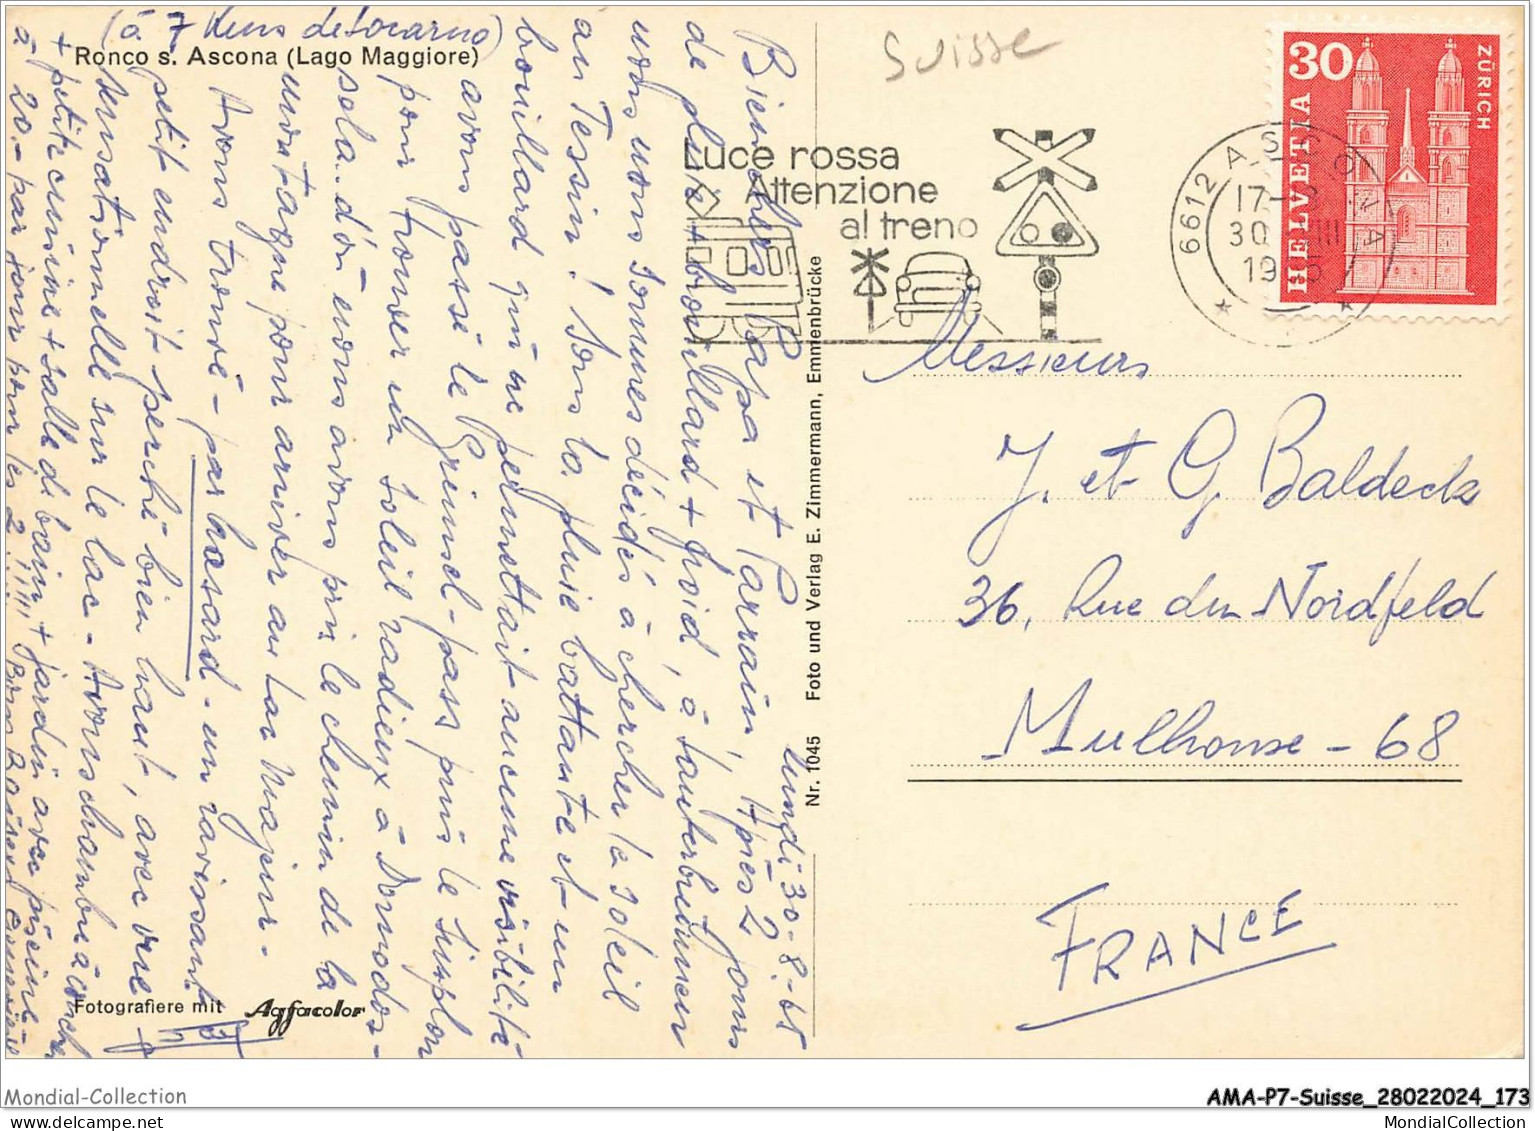 (à 7 Kms de Locarno)
Ronco s. Ascona (Lago Maggiore)
Suisse
Luce rossa
Attenzione
al treno
6612 ASCONA
17-
30 VIII
1965
30
HELVETIA
ZÜRICH
lundi 30-8-65
Bien chers Papa et Parrain, Après 2 jours
de pluie + brouillard + froid, à Lauterbrunnen
nous nous sommes décidés à chercher le soleil
au Tessin! Sous la pluie battante et un
brouillard qui ne permettait aucune visibilité
avons passé le Grimsel-pass puis le Simplon
pour trouver un soleil radieux à Domodos-
sola - d'où nous avons pris le chemin de la
montagne pour arriver au Lac Majeur -
Avons trouvé - par hasard - un ravissant
petit endroit perché bien haut, avec vue
sensationnelle sur le lac - Avons chambre à coucher
+ petite cuisine + salle de bain + jardin avec piscine -
à 20.- par jour pour les 2 !!!! Bons Baisers
Messieurs
J. et G. Baldeck
36, Rue du Nordfeld
Mulhouse - 68
FRANCE
Nr. 1045 Foto und Verlag E. Zimmermann, Emmenbrücke
Fotografiere mit Agfacolor
Mondial-Collection
AMA-P7-Suisse_28022024_173
MondialCollection